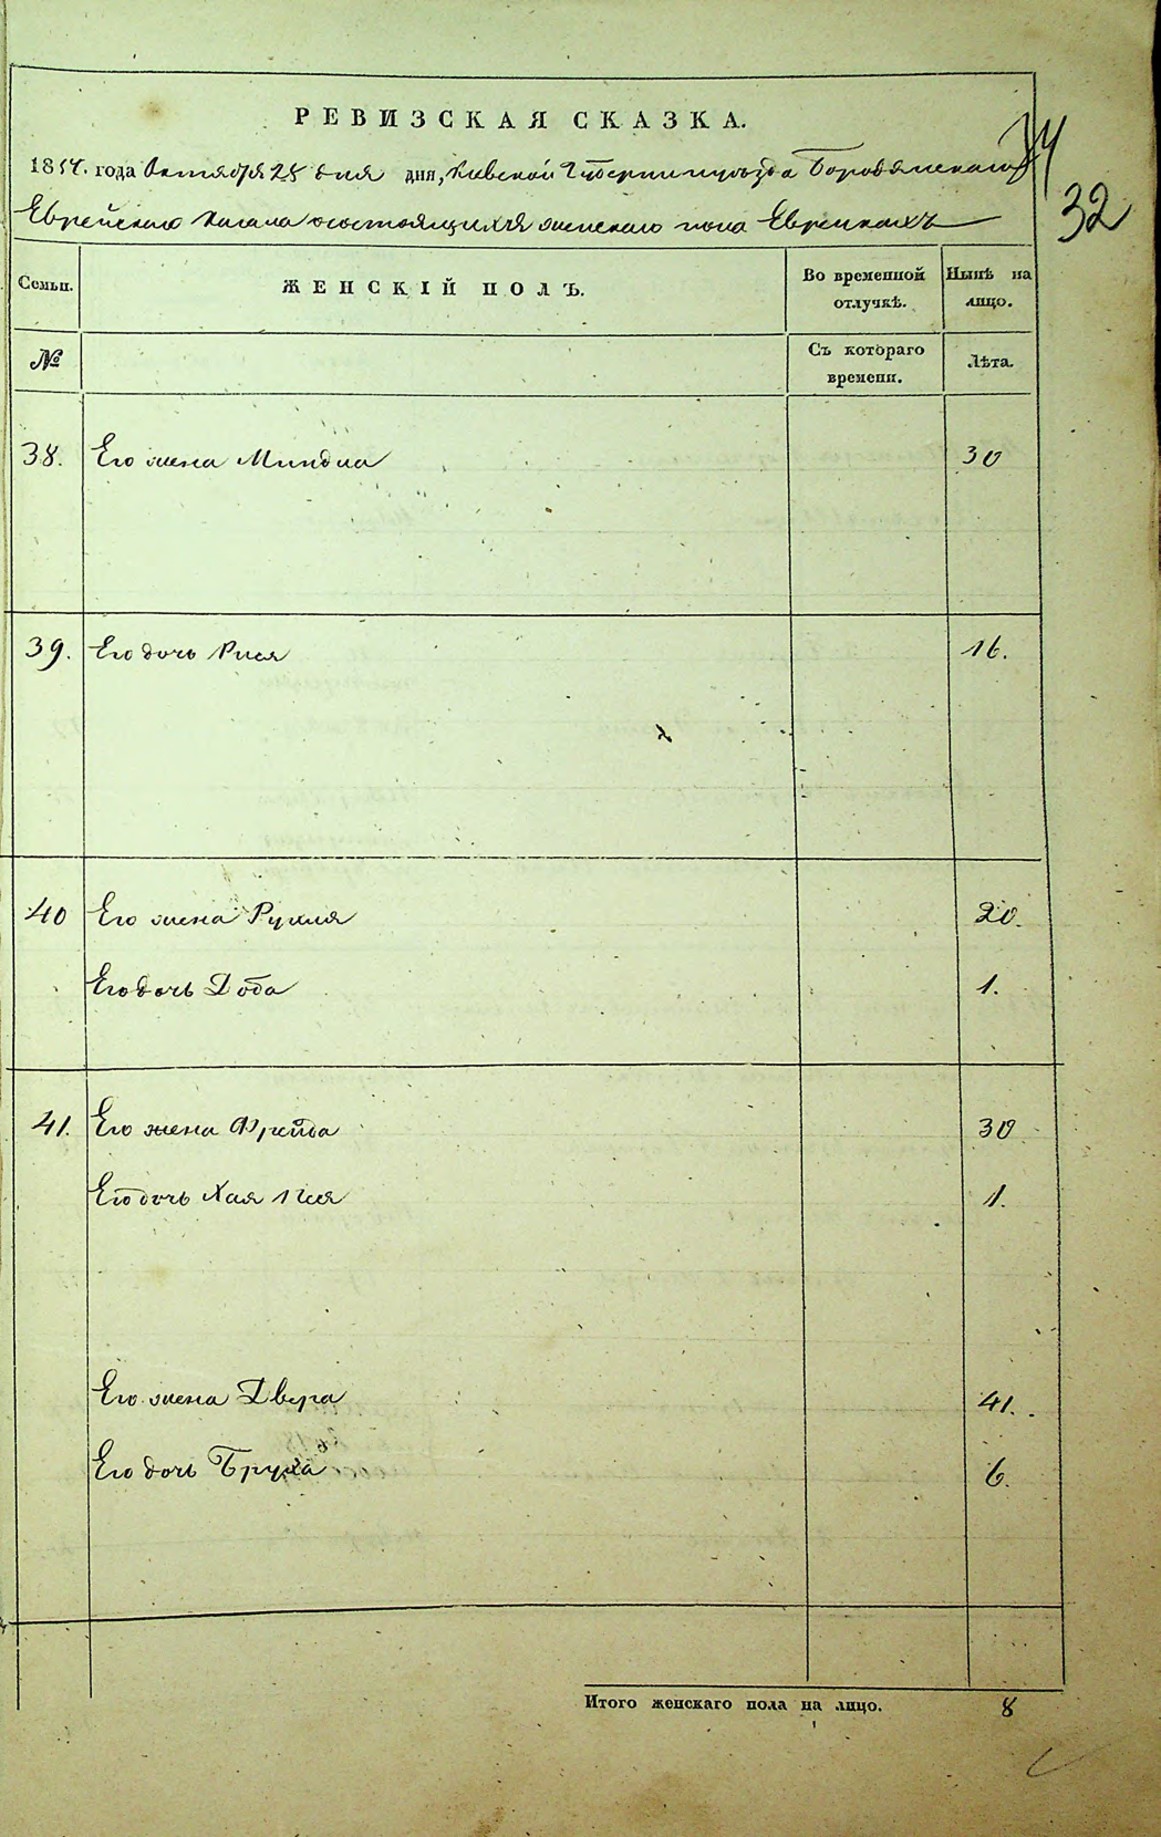 РЕВИЗСКАЯ СКАЗКА.
1854. года Октября 25 дня дня, Киевской Губернии и уезда Бородянскаго
Еврейскаго Кагала о состоящихъ женскаго пола Евреикахъ
32
Семьи. ЖЕНСКІЙ ПОЛЪ. Во временной отлучкѣ. Нынѣ на лицо.
№ Съ котораго времени. Лѣта.
38. Его жена Миндла 30
39. Его дочь Рися 16.
40 Его жена Рухля 20.
Его дочь Доба 1.
41. Его жена Фрейда 30
Его дочь Хая 1.
Его жена Двера 41.
Его дочь Бруха 6.
Итого женскаго пола на лицо. 8